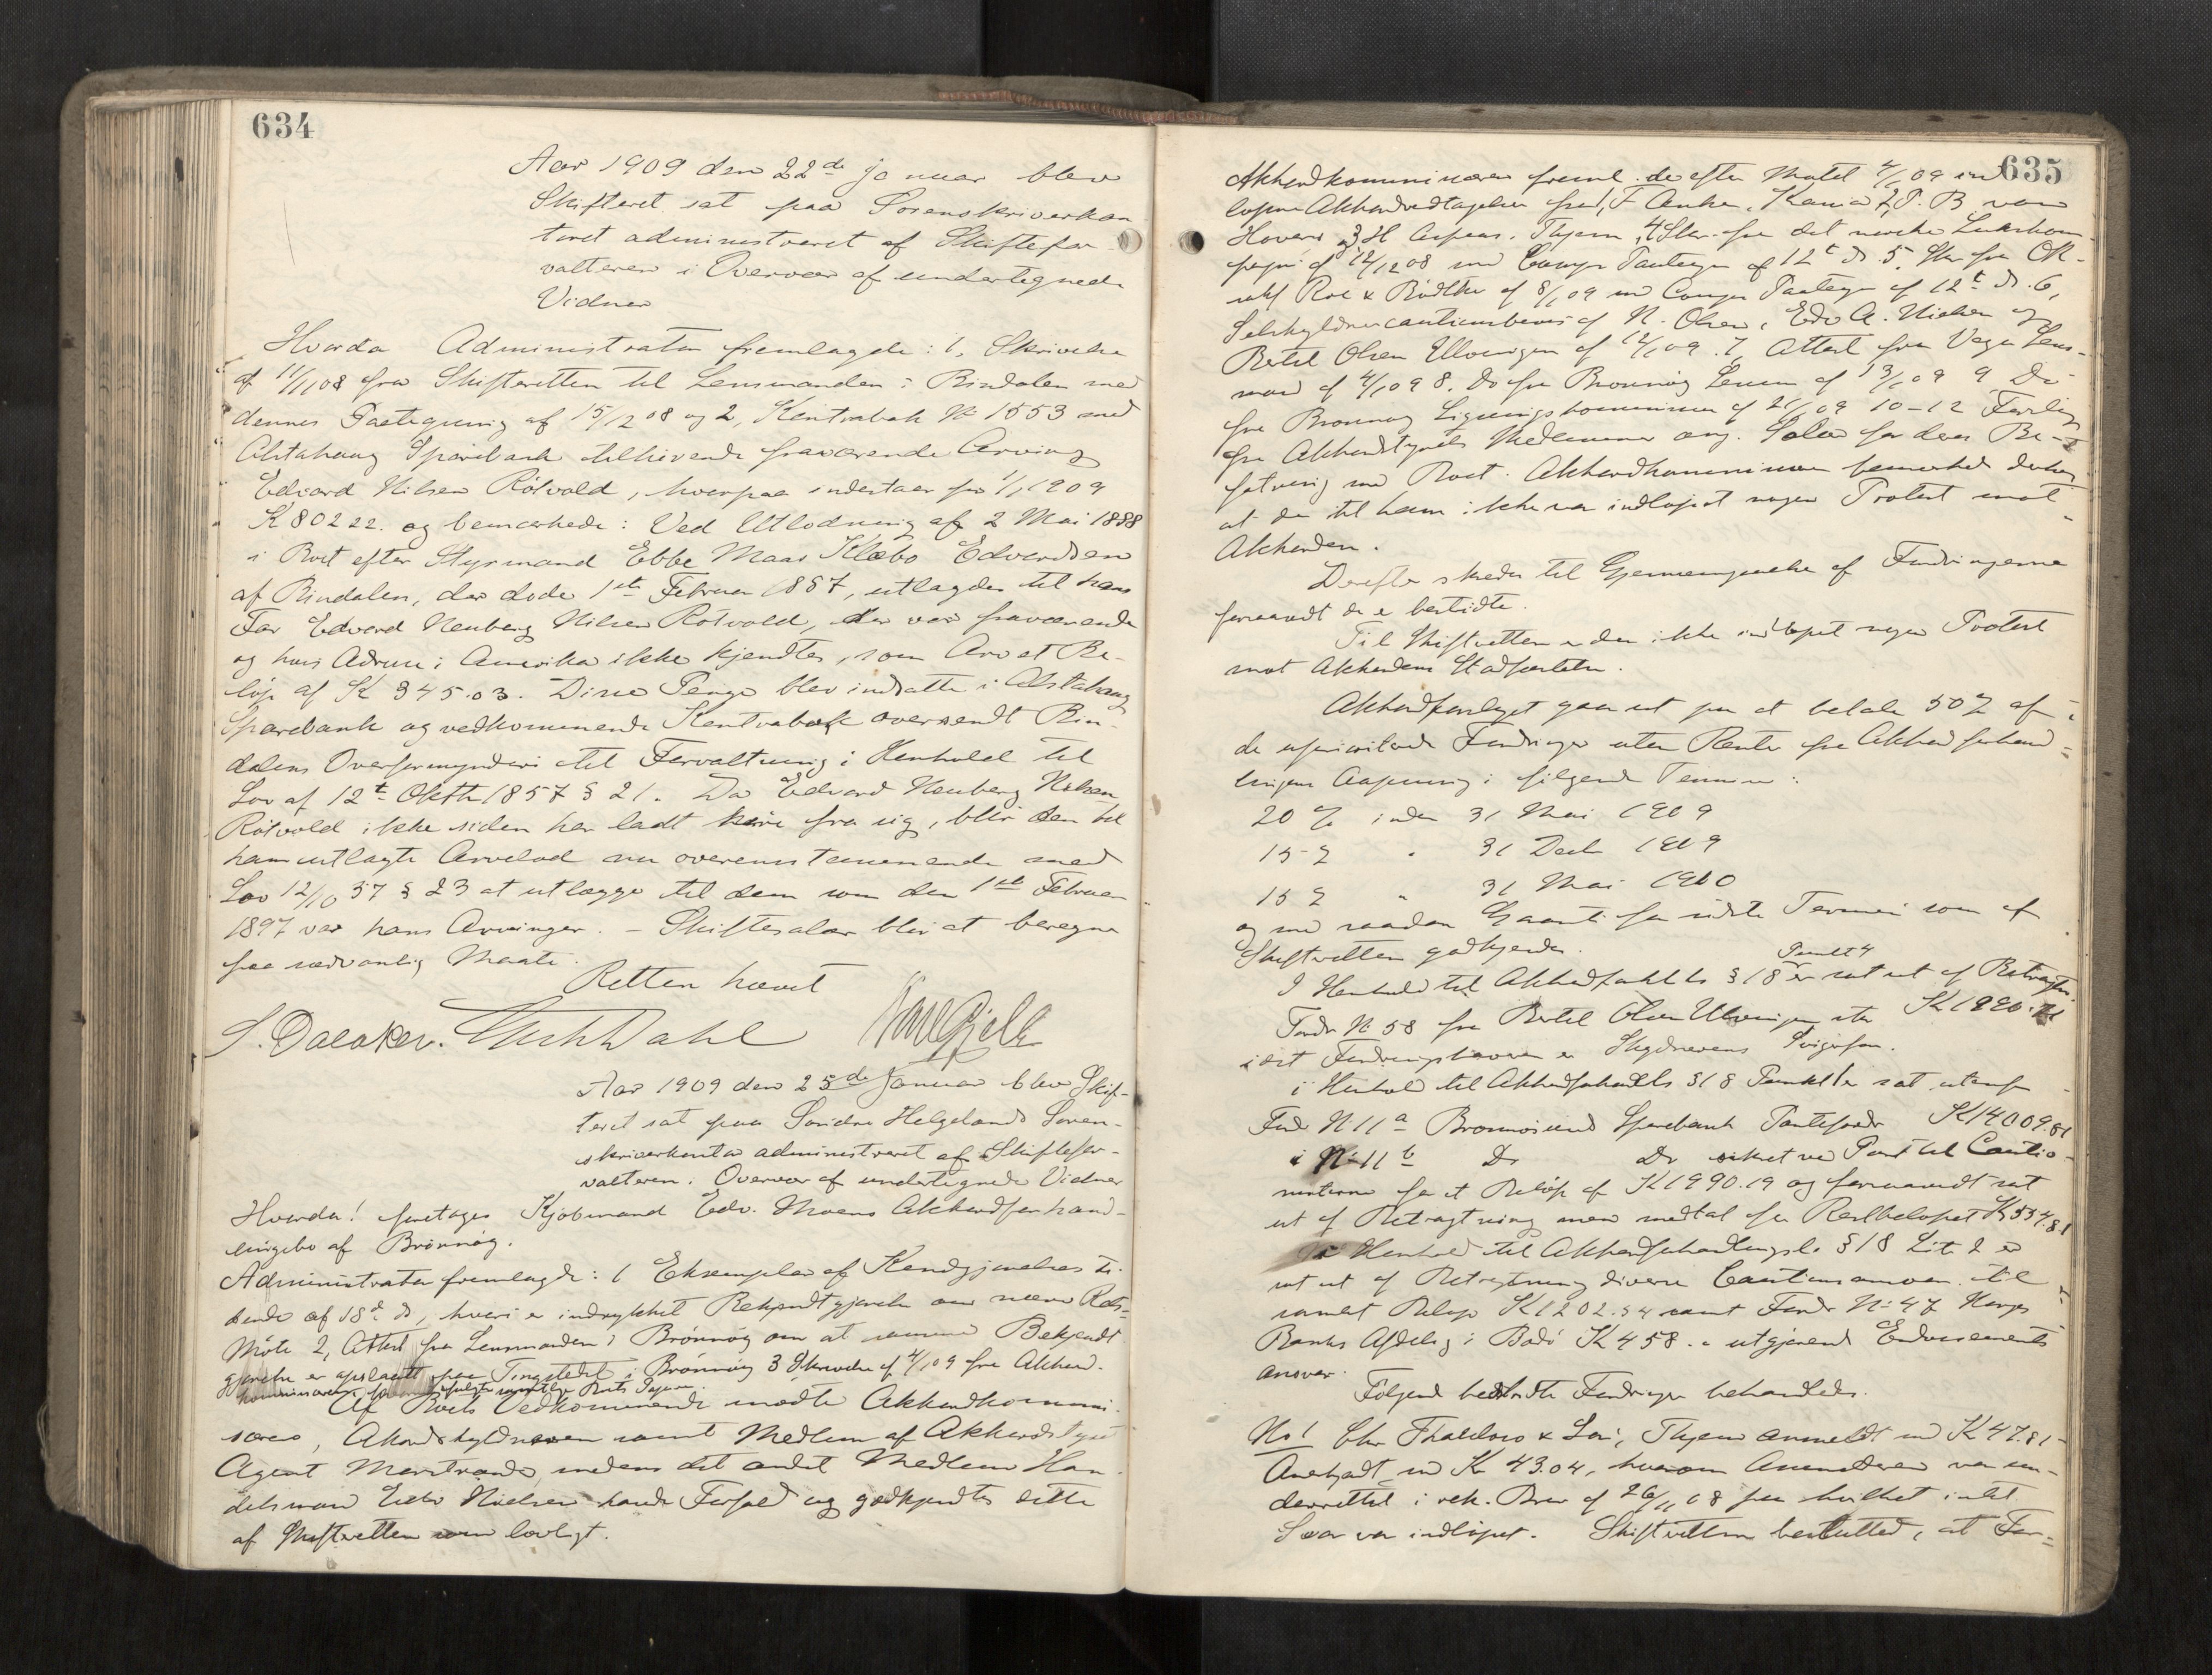 634
Aar 1909 den 22de Januar blev
Skifteret sat paa Sorenskriverkon
toret administreret af Skiftefor-
valteren i Overvær af undertegnede
Vidner
Hvorda Administrator fremlagde: 1, Skrivelse
af 11/11 08 fra Skifteretten til Lensmanden i Bindalen med
dennes Paategning af 15/12 08 og 2, Kontrabok No 1553 med
Alstahaug Sparebank tilhørende fraværende Arving
Edvard Nilsen Rötvold, hvorpaa indestaar pr 1/1 1909
K 802 22. og bemærkede: Ved Utlodning af 2 Mai 1888
i Boet efter Styrmand Ebbe Maas Klæbo Edvardsen
af Bindalen, der døde 1ste Februar 1887, utlagdes til hans
Far Edvard Neuberg Nilsen Rötvold, der var fraværende
og hvis Adresse i Amerika ikke kjendtes, som Arv et Be-
löp af K 345.03. Disse Penge blev indsatte i Alstahaug
Sparebank og vedkommende Kontrabok oversendt Bin-
dalens Overformynderi til Forvaltning i Henhold til
Lov af 12te Oktbr 1857 § 21. Da Edvard Neuberg Nilsen
Rötvold ikke siden har ladt höre fra sig, blir den til
ham utlagte Arvelod nu overensstemmende med
Lov 12/10 57 § 23 at utlægge til dem som den 1ste Februar
1897 var hans Arvinger. - Skiftesalær blir at beregne
paa sædvanlig Maate.
Retten hævet
S. Dalaker.
Aar 1909 den 25de Januar blev Skif-
teret sat paa Söndre Helgelands Soren-
skriverkontor administreret af Skiftefor-
valteren i Overvær af undertegnede Vidner
Hvorda! foretages Kjöbmand Edv. Moens Akkordforhand-
lingsbo af Brönnöy.
Administrator fremlagde: 1 Eksemplar af Kundgjørelses Ti-
dende af 18de ds, hvori er indrykket Bekjendtgjørelse om nærv Rets-
Möte 2, Attest fra Lensmanden i Brönnöy om at samme Bekjendt
gjørelse er opslaatt paa Tingstedet i Brönnöy 3 Skrivelse af 4/1 09 fra Akkord-
kommissæren
Af Boets Vedkommende mödte Akkordkommi-
særen, Akordskyldneren samt Medlem af Akkordstyret
Agent Marstrand, medens det andet Medlem Han
delsmand Edv Nielsen havde Forfald og godkjendtes dette
af Skifteretten som lovligt.
635
Akkordkommissæren freml. de efter Mötet 4/1 09 ind
löpne Akkordvedtagelser fra 1, F Anker, Kania 2, P. B van
Hoven 3 H Aspaas. Thjem, 4 Skr. fra det norske
pagni af 12/12 08 med Paategn af 12te ds. 5, Skr fra
Roe & Bödtker af 8/1 09 med Paategn af 12te ds. 6,
Selvskyldnercautionsbevis af N. Olsen, Edv A. Nielsen og
Bertel Olsen Ulvingen af 12/1 09. 7, Attest fra Vega Lens-
mand af 4/1 09 8. Do fra Brönnöy Lensm af 13/1 09 9 Do
fra Brönnöy Ligningskommission af 21/1 09 10-12 Forslag
fra Akkordstyrets Medlemmer ang. Salær for deres Be-
fatning med Boet. Akkordkommissæren bemerket derhos
at der til ham ikke var indlöpet nogen Protest mot
Akkorden.
Derefter skredes til Gjennemgaaelse af Fordringerne
forsaavidt de er bestridte.
Til Skifteretten er der ikke indlöpet nogen Protest
mot Akkordens Stadfæstelse.
Akkordforslaget gaar ut paa at betale 50 % af
de uprioriterede Fordringer uten Renter fra Akkordforhand-
lingens Aapning i fölgende Terminer:
20 % inden 31 Mai 1909
15 % " 31 Decbr 1909
15 % " 31 Mai 1910
og med saadan Garanti for sidste Termin som af
Skifteretten godkjendes.
Punkt 4
I Henhold til Akkordforhls § 18 er sat ut af Betragtn.
Fordr No 58 fra Bertel Olsen Ulvingen stor K 1990.
idet Fordringshaveren er Skyldnerens Svigerfar.
i Henhold til Akkordforhandls § 18 Punkt 1 er sat utenfor
Fordr N 11 a Brönnösund Sparebank Pantefordr K 14009.81
i N 11 b Do Do sikret ved Pant til Cautio-
nisterne for et Belöp af K 1990.19 og forsaavidt sat
ut af Betragtning men medtat for Restbelöpet K 534.81
i Henhold til Akkordforhandlingsl. § 18 Litr 2 er
sat ut af Betragtning diverse Cautionsansvar til
samlet Belöp K 1202.54 samt Fordr No 47 Norges
Banks Afdeling i Bodö K 458. utgjørende Endossements
ansvar.
Fölgende bestridte Fordringer behandledes.
No 1 Chr Thaulow & Sön, Thjem anmeldt med K 47.81
Anerkjendt med Kr 43.04, hvorom Anmelderen var un-
derrettet i rek. Brev af 26/11 08 paa hvilket intet
Svar var indlöpet. Skifteretten besluttet, at For-